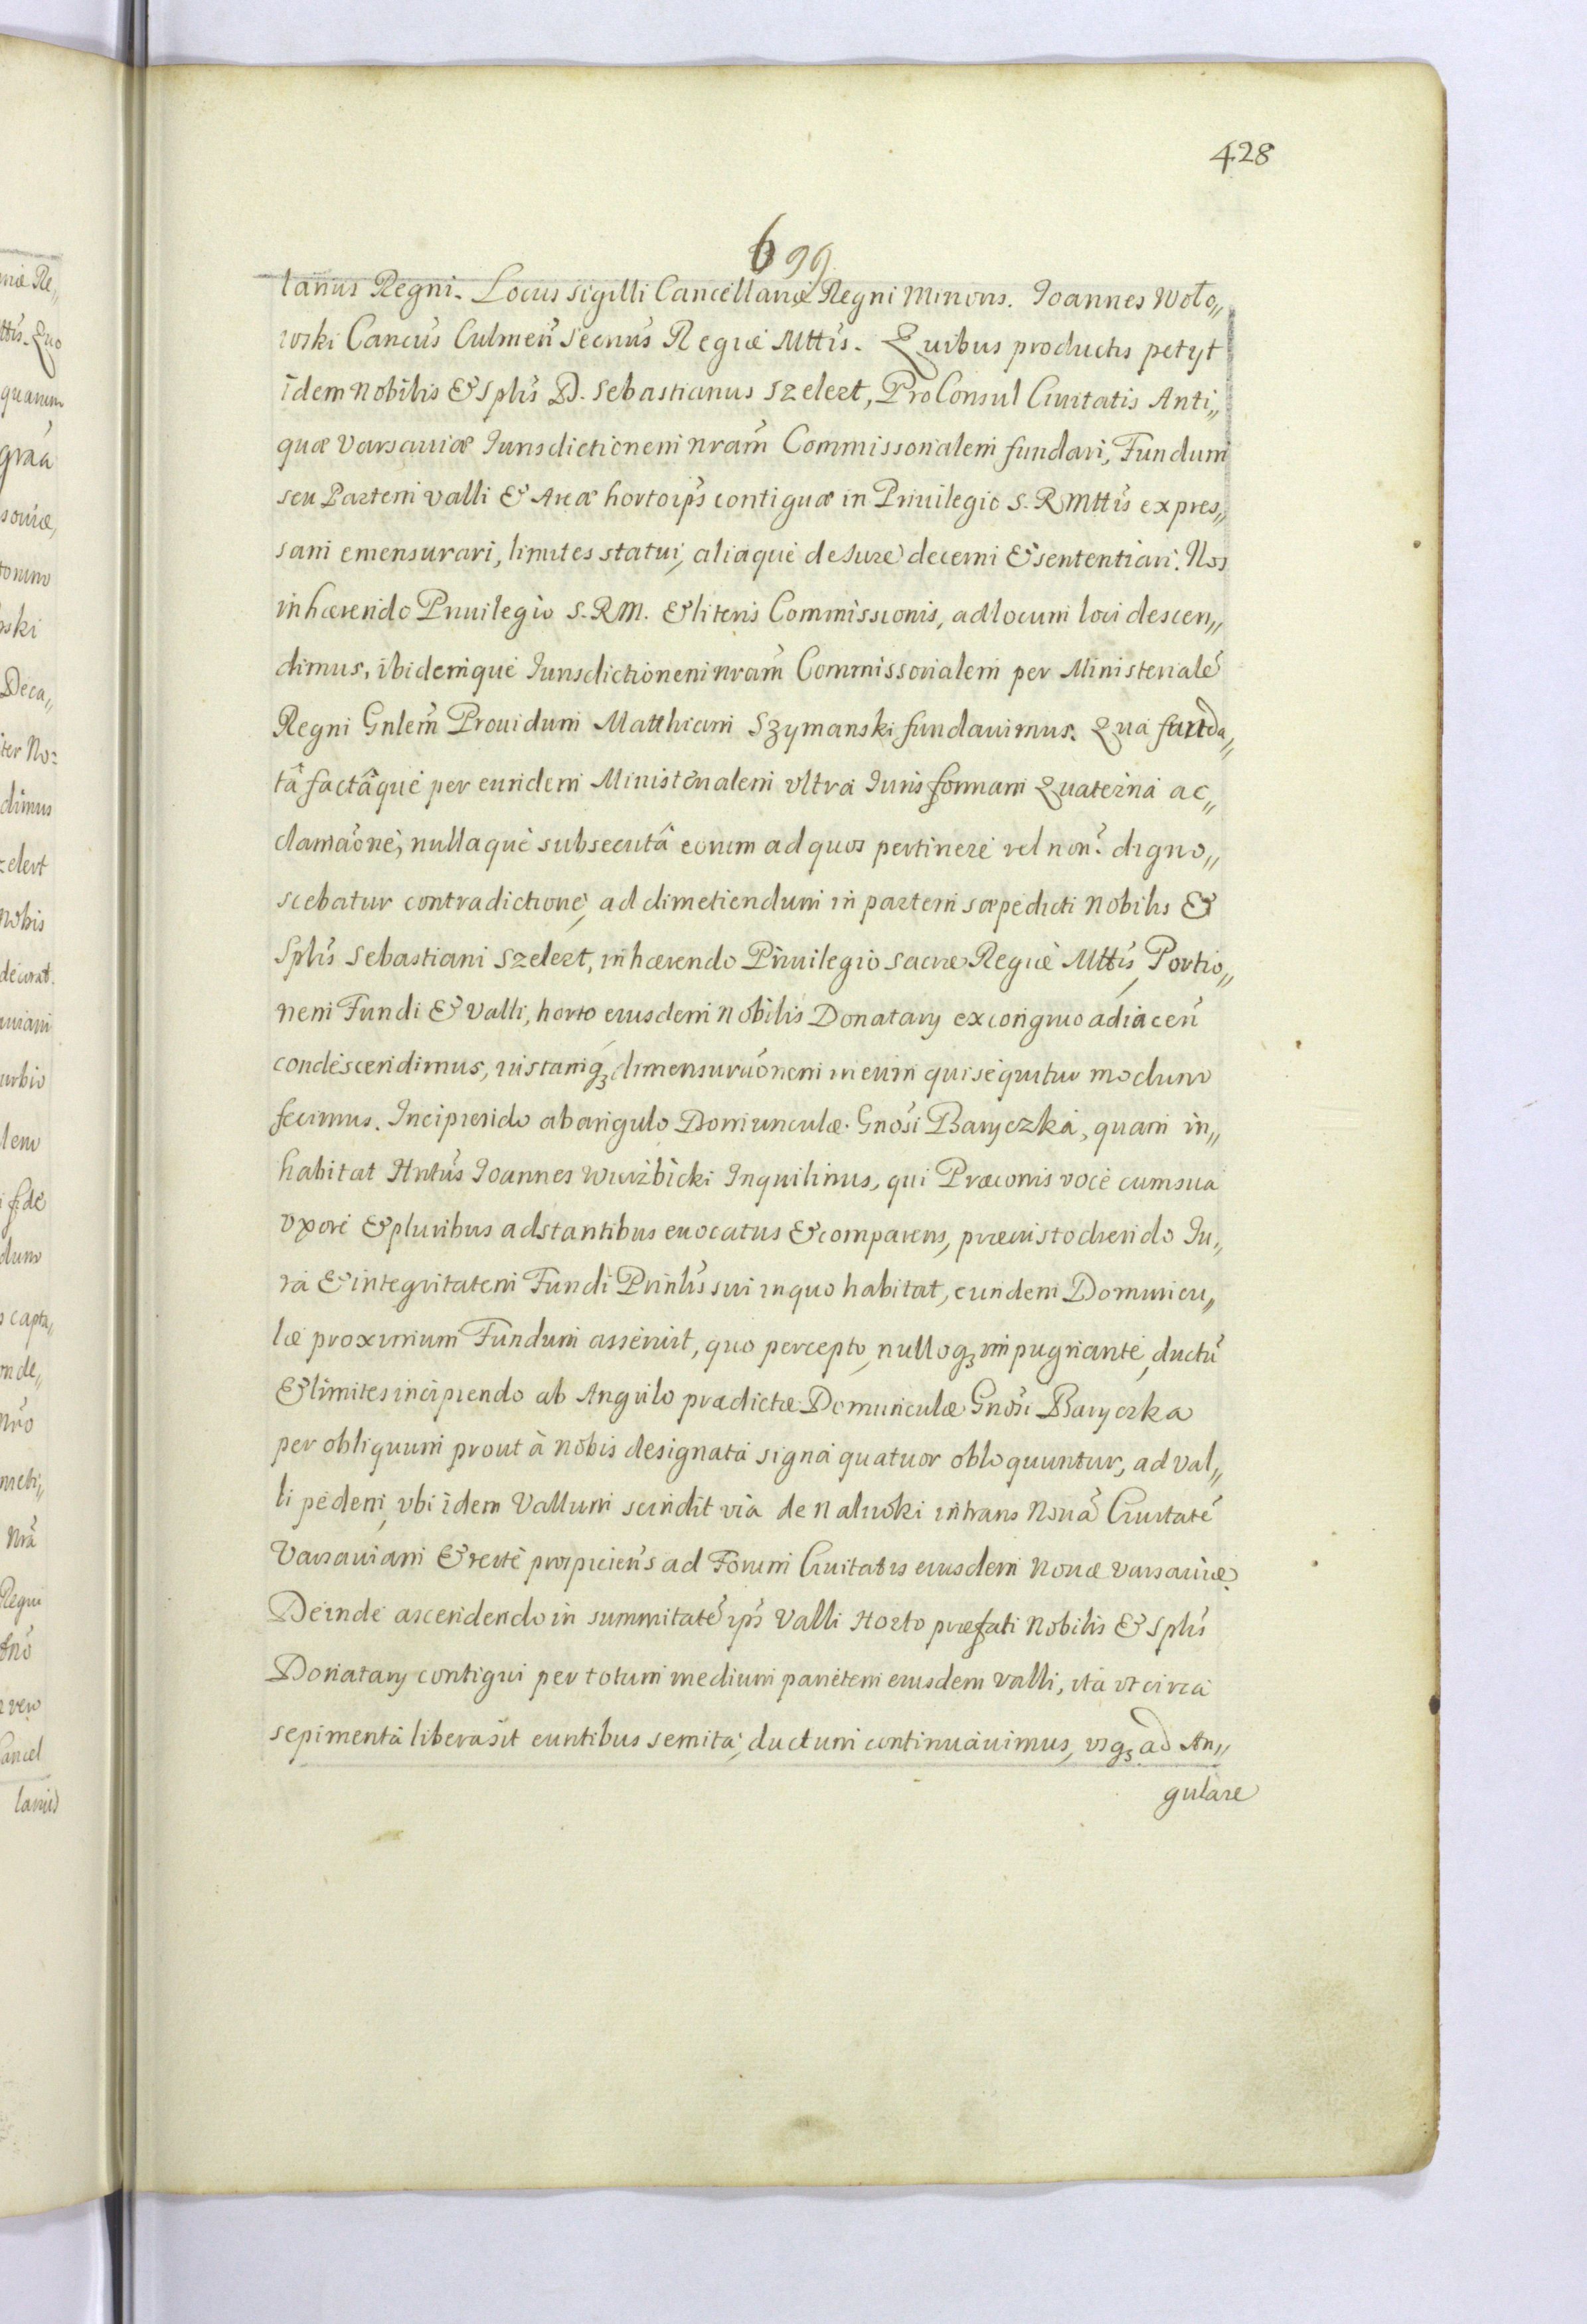 428
699
larius Regni. Locus sigilli Cancellariæ Regni Minoris. Joannes Woło„
wski Cancûs Culmeñ Secrius Regiæ Mttis. Quibus productis petijt
idem Nobilis & Splis D. Sebastianus Szelert, ProConsul Ciuitatis Anti„
quæ Varsauiæ Iurisdictionem nram Commissorialem fundari, Fundum
seu Partem valli & Areæ horto ips contiguæ in Priuilegio S. R Mttis expres„
sam emensurari, limites statui, aliaque de Iure decerni & sententiari. Nos
inhærendo Priuilegio S. R M. & literis Commissionis, ad locum loci descen„
dimus, ibidemque Iurisdictionem nram Commissorialem per Ministerialē
Regni Gnlem Prouidum Matthiam Szymanski fundauimus. Qua funda„
tâ factâque per eundem Ministerialem vltra Iuris formam Quaterna ac„
clamaone, nullaque subsecutâ eorum ad quos pertinere vel non? digno„
scebatur contradictione, ad dimetiendum in partem sæpedicti Nobilis &
Splis Sebastiani Szelert, inhærendo Priuilegio Sacræ Regiæ Mttis, Portio„
nem Fundi & Valli, horto eiusdem Nobilis Donatarij ex congruo adiaceñ
condescendimus, iustamq3 dimensuraonem in eum qui sequitur modum
fecimus. Incipiendo ab angulo Domunculæ Gnosi Baryczka, quam in„
habitat Hntus Joannes Wierzbicki Inquilinus, qui Præconis voce cum sua
vxore & pluribus adstantibus euocatus & comparens, præcustodiendo Iu„
ra & integritatem Fundi Prinlis sui in quo habitat, eundem Domuncu„
læ proximum Fundum asseruit, quo percepto, nulloq3 impugnante, ductū
& limites incipiendo ab Angulo prædictæ Domunculæ Gnosi Baryczka
per obliquum prout à nobis designata signa quatuor obloquuntur, ad val„
li pedem, vbi idem Vallum scindit via de Nalewki intrans Nouā Ciuitatē
Varsauiam & recte prospiciens ad Forum Ciuitatis eiusdem Nouæ Varsauiæ.
Deinde ascendendo in summitatē ips Valli Horto præfati Nobilis & Splis
Donatarij contigui per totum medium parietem eiusdem valli, ita vt circa
sepimenta libera sit euntibus semita, ductum continuauimus, vsq3 ad An„
gulare